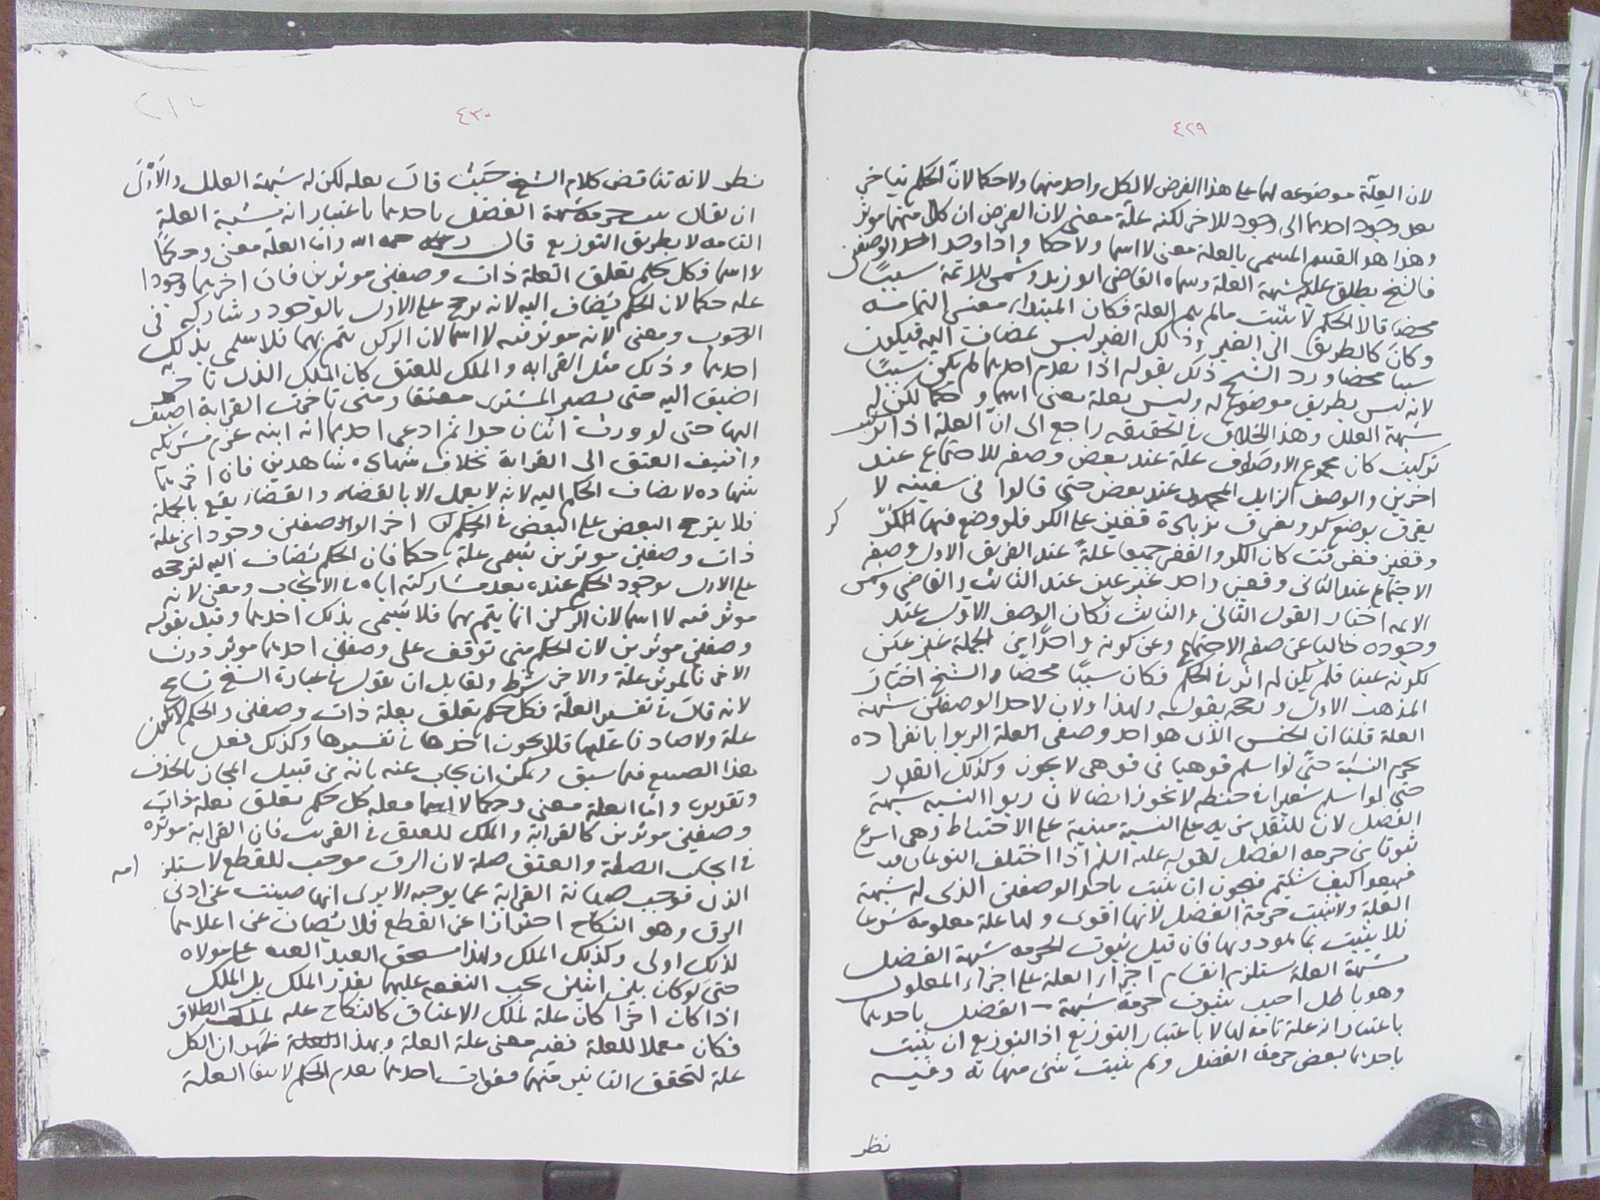 ٤٢٩
لان العلة موضوعه لهما على هذا الفرض لا لكل واحد منهما ولا حكما لان الحكم يتراخى
بعد وجود احدهما الى وجود للاخر لكنه علة معنى لان الفرض ان كلا منهما موثر
وهذا هو القسم المسمى بالعلة معنى لا اسما ولا حكما واذا وجد احد الوصفين
فالشيخ يطلق عليه شبهة العلة وسماه القاضي ابو زيد وشمس الائمة سببا
محضا قالا الحكم لا يثبت مالم يتم العلة فكان المبتدا معنى التمامه
وكان كالطريق الى الغير وذلك الغير ليس بمضاف اليه فيكون
سببا محضا ورد الشيخ ذلك بقوله اذا تقدم احدهما لم يكن سببا
لانه ليس بطريق موضوع له وليس بعلة يعنى اسما وحكما لكن له
شبهة العلل وهذا الخلاف في الحقيقه راجع الى ان العلة اذا
تركبت كان مجموع الاوصاف علة عند بعض وصفه للاجتماع عند
اخرين والوصف الزايد عند بعض حتى قالوا في سفينه لا
يغرق بوضع كر ويغرق بزيادة قفيز على الكر فلو وضع فيها الكر
وقفيز فغرقت كان الكر والقفيز جميعا علة عند الفريق الاول وصفه
الاجتماع عند الثاني وقفيز واحد غير عين عند الثالث والقاضي وشمس
الائمه اختارا القول الثاني والثالث فكان الوصف الاول عند
وجوده خاليا عن صفه الاجتماع وعن كونه واحدا من الجملة غير عين
لكونه عينا فلم يكن له اثر في الحكم فكان سببا محضا والشيخ اختار
المذهب الاول ورجحه بقوله ولهذا ولان لاحد الوصفين شبهة
العلة قلنا ان الجنس الذى هو احد وصفى العلة الربوا بانفراده
يحرم النسئة حتى لو اسلم قوهيا في قوهى لا يجوز وكذلك القدر
حتى لو اسلم شعيرا في حنطه لا يجوز ايضا لان ربوا النسيه شبهة
الفضل لان للنقد مزيه على النسية مبنية على الاحتياط وهى اسرع
ثبوتا من حرمه الفضل لقوله عليه السلم اذا اختلف النوعان
فبيعوا كيف شئتم فيجوز ان يثبت باحد الوصفين الذى له شبهة
العلة ولا يثبت حرمة الفضل لانها اقوى ولها علة معلومه شرعا
فلا يثبت بما هو دونها فان قيل ثبوت الحرمه شبهة الفضل
شبهة العلة يستلزم انقسام اجزاء العلة على اجزاء المعلول
وهو باطل اجيب بثبوت حرمة شبهة الفضل باحدهما
باعتبار انه علة تامه لها لا باعتبار التوزيع اذ التوزيع ان يثبت
باحدهما بعض حرمة الفضل ولم يثبت شئ منها به وفيه
نظر
كر
٤٣٠
نظر لانه تناقض كلام الشيخ حيث قال بعله لكن له شبهة العلل والاولى
ان يقال حرمه شبهة الفضل باحدهما باعتبار انه شبهة العلة
التامه لا بطريق التوزيع قال رحمه الله واما العلة معنى وحكما
لا اسما فكل حكم تعلق بعلة ذات وصفين موثرين فان اخرهما وجودا
علة حكما لان الحكم يضاف اليه لانه يرجح على الاول بالوجود وشاركه في
الوجوب ومعنى لانه موثر فيه لا اسما لان الركن يتم بهما فلا يسمى بذلك
احدهما وذلك مثل القرابه والملك للعتق كان الملك الذى تاخر
اضيف اليه حتى يصير المشترى معتقا ومتى تاخرت القرابة اضيف
اليها حتى لو ورث اثنان عبدا ثم ادعى احدهما انه ابنه غرم شريكه
واضيف العتق الى القرابة بخلاف شهادة شاهدين فان اخرهما
شهاده لا يضاف الحكم اليه لانه لا يعمل الا بالقضاء والقضاء يقع بالجملة
فلا يترجح البعض على البعض في الحكم اخر الوصفين وجودا من علة
ذات وصفين موثرين يسمى علة حكما فان الحكم يضاف اليه لترجحه
على الاول بوجود الحكم عنده بعد مشاركته اياه في الايجاب ومعنى لانه
موثر فيه لا اسما لان الركن انما يتم بهما فلا يسمى بذلك احدهما وقيد بقوله
وصفين موثرين لان الحكم متى توقف على وصفين احدهما موثر دون
الاخر فالموثر علة والاخر شرط ولقايل ان يقول في عبارة الشيخ تسامح
لانه قال في تفسير العلة فكل حكم تعلق بعلة ذات وصفين والحكم لا يكون
علة ولا صادقا عليها فلا يجوز اخذها في تفسيرها وكذلك فعل
هذا الصنيع فيما سبق ويمكن ان يجاب عنه بانه من قبيل المجاز بالحذف
وتقديره واما العلة معنى وحكما لا اسما فعله كل حكم تعلق بعلة ذات
وصفين موثرين كالقرابة والملك للعتق في القريب فان القرابة موثره
في ايجاب الصلة والعتق صلة لان الرق موجب للقطع لاستلز امه
الذل فوجب صيانة القرابة عما يوجبه الا يرى انها صينت عن ادنى
الرق وهو النكاح احترازا عن القطع فلا يصان عن اعلاهما
لذلك اولى وكذلك الملك ولهذا يستحق العبد النفقه على مولاه
حتى لو كان بين اثنين يجب النفقه عليهما بقدر الملك بل الملك
اذا كان اخرا كان علة لملك الاعتاق كالنكاح علة لملك الطلاق
فكان معملا للعلة ففيه معنى علة العلة وبهذا ظهر ان الكل
علة لتحقق التاثير منهما ففوات احدهما يعدم الحكم لانتفا العلة